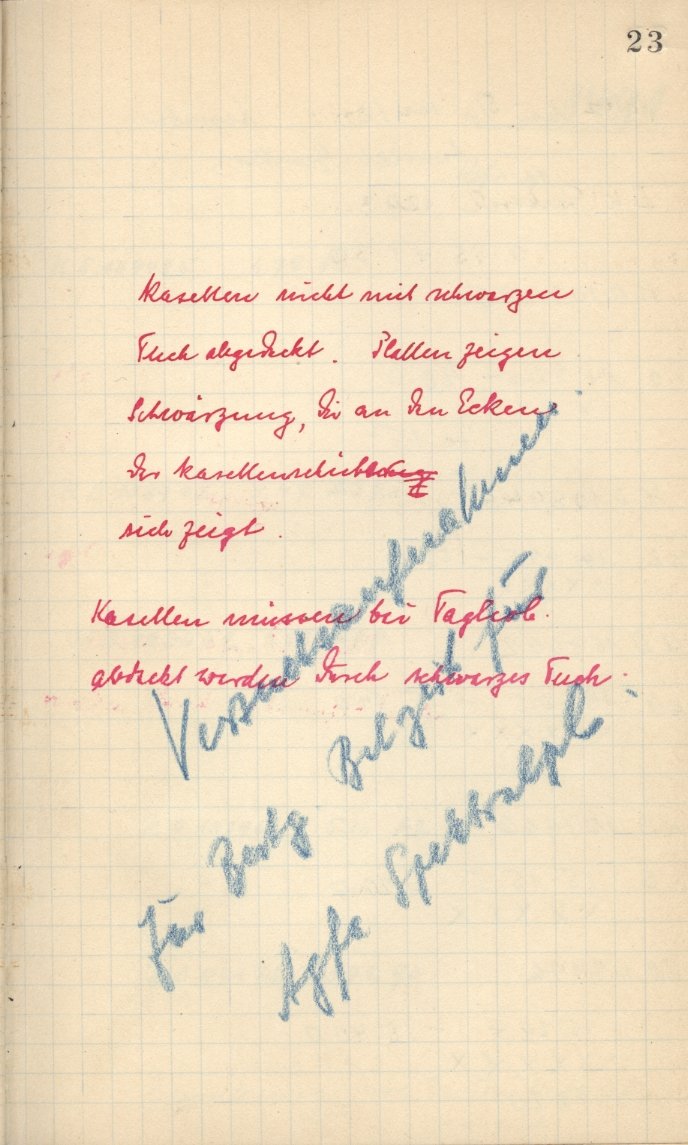 23
Kasetten nicht mit schwarzen
Tuch abgedeckt. Platten zeigen
Schwärzung, die an den Ecken
der
sich zeigt.
Kasetten müssen bei Tag
abdeckt werden durch schwarzes Tuch.
Versuchsaufnahmen
für Bestg Belzeit für
Agfa Spektralpl.